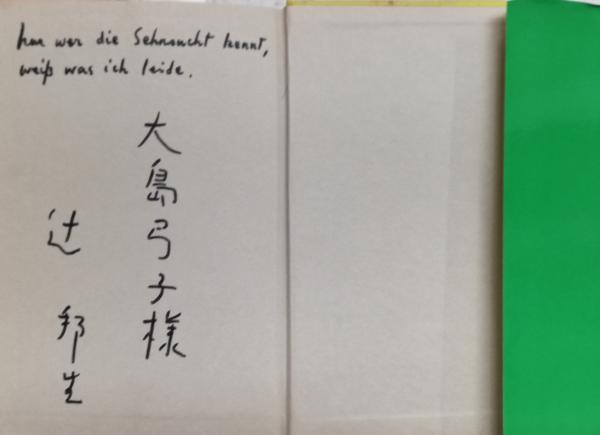 Nur wer die Sehnsucht kennt,
weiß was ich leide.
大島弓子様
辻 邦生